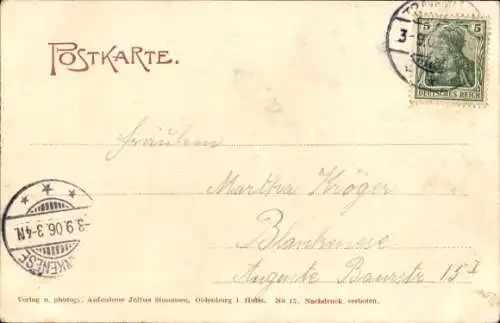 POSTKARTE.
5 5
DEUTSCHES REICH
3-9.0
Fräulein
Martha Kröger
Blankenese
Auguste Baurstr 15 I
-3.9.06.3-4N.
Verlag u. photogr. Aufnahme Julius Simonsen, Oldenburg i. Holst. No 15. Nachdruck verboten.